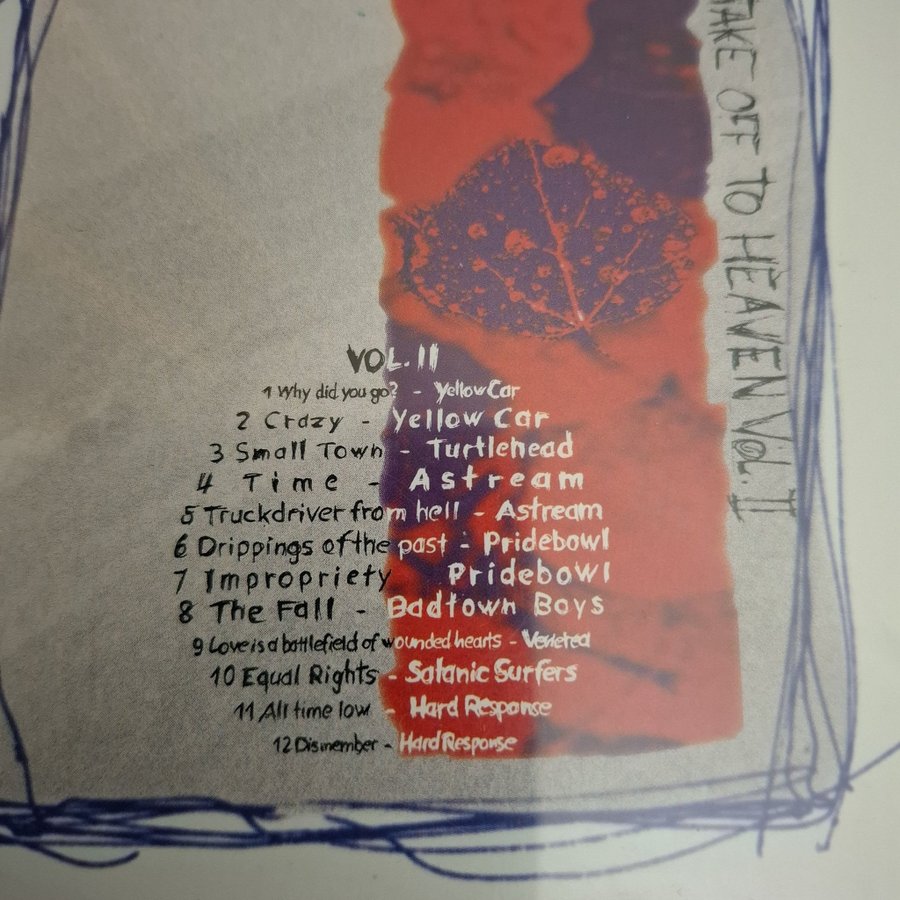 TAKE OFF TO HEAVEN VOL. II
VOL. II
1 Why did you go? - Yellow Car
2 Crazy - Yellow Car
3 Small Town - Turtlehead
4 Time - Astream
5 Truckdriver from hell - Astream
6 Drippings of the past - Pridebowl
7 Impropriety Pridebowl
8 The Fall - Badtown Boys
9 Love is a battlefield of wounded hearts -
10 Equal Rights - Satanic Surfers
11 All time low - Hard Response
12 Dismember - Hard Response